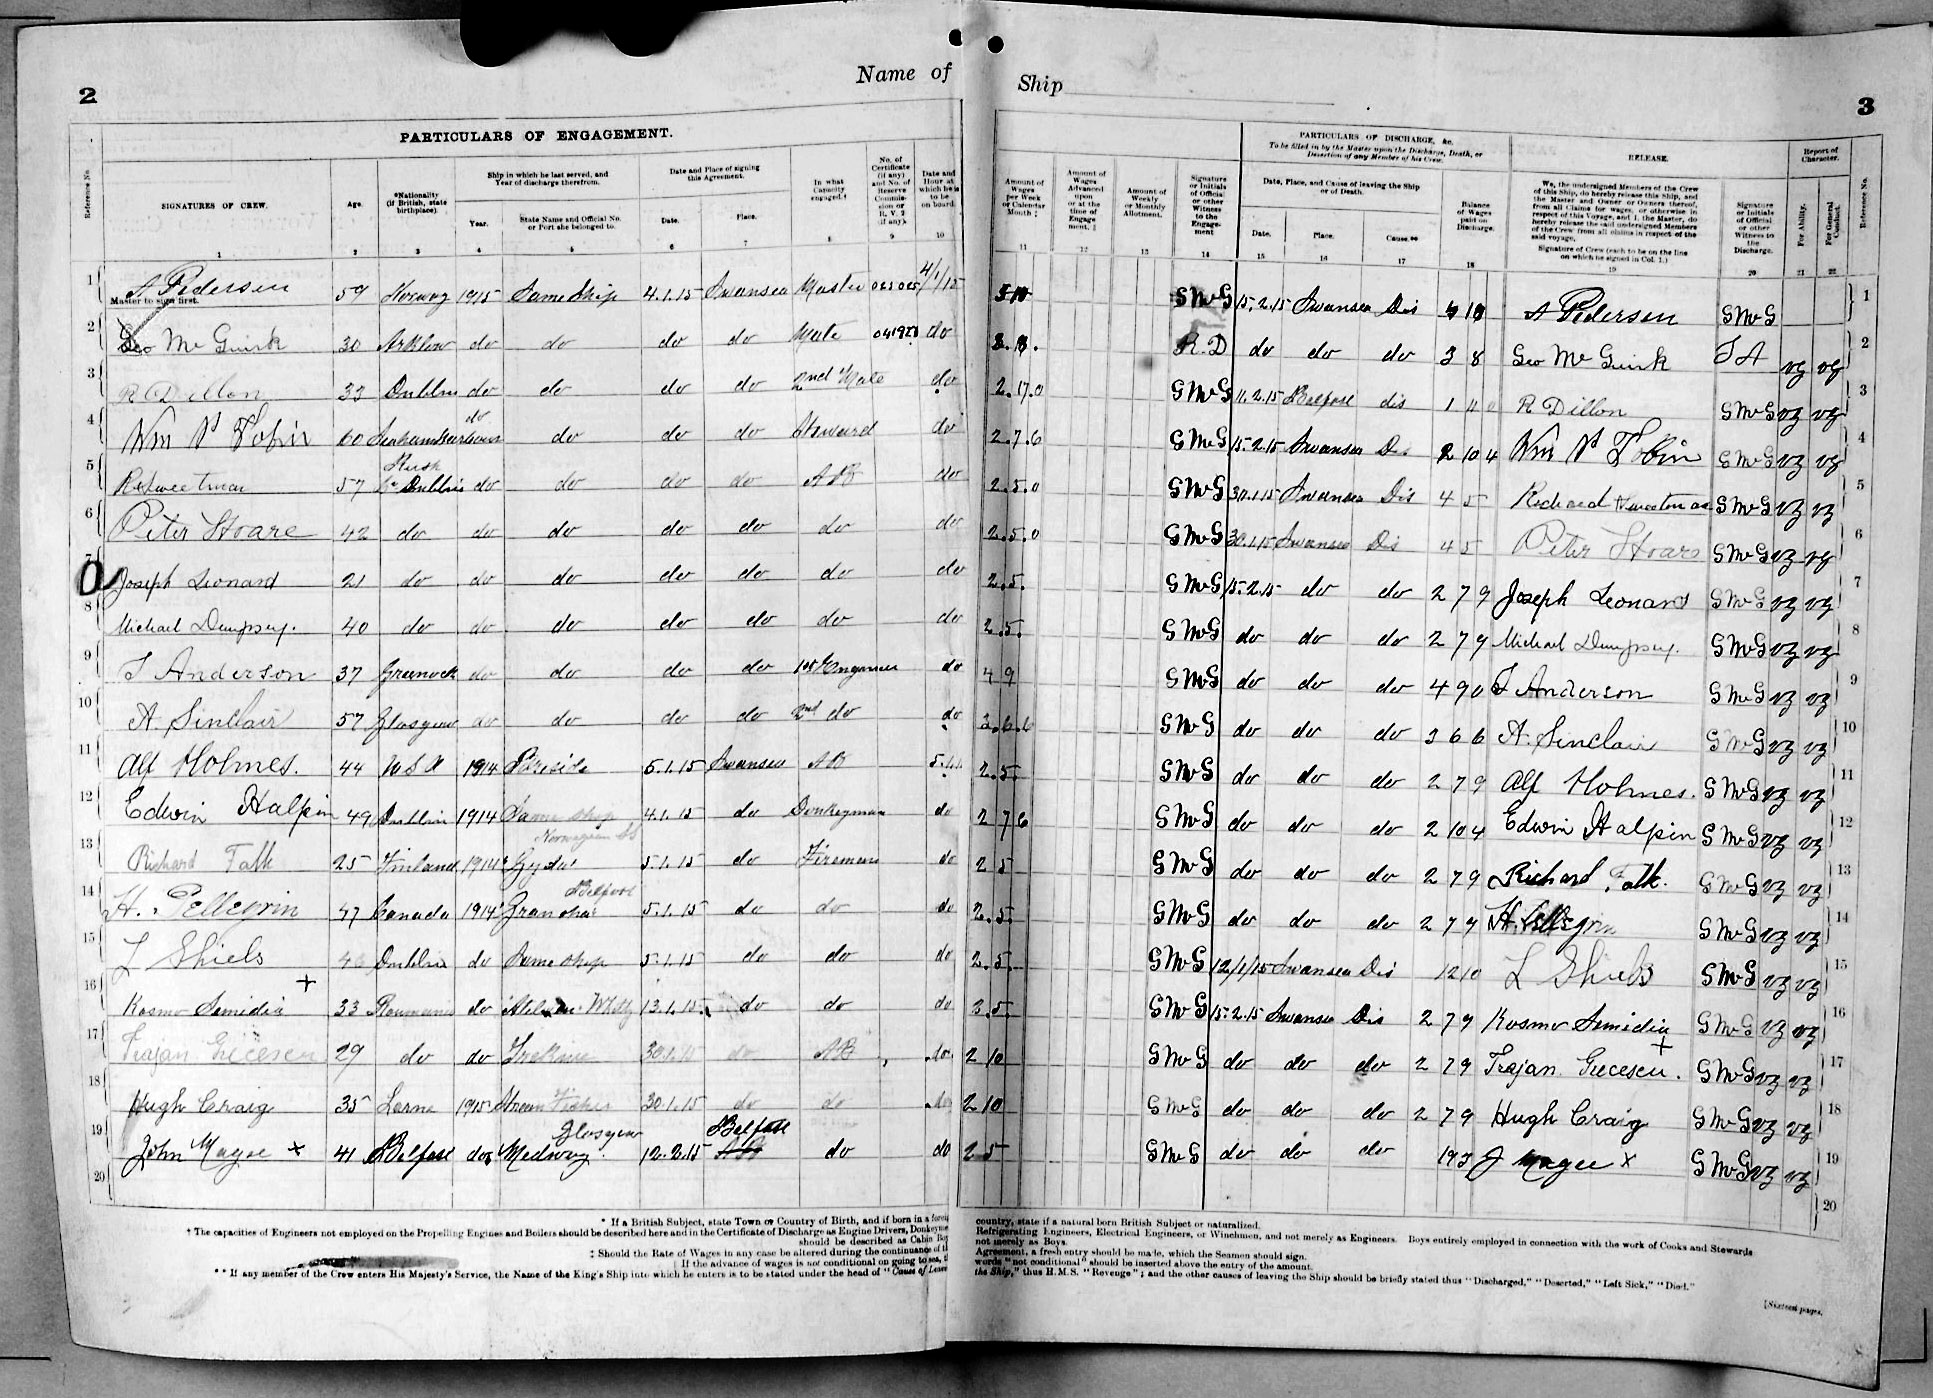 Name of Ship
2
3
PARTICULARS OF ENGAGEMENT.
PARTICULARS OF DISCHARGE, &c.
To be filled in by the Master upon the Discharge, Death, or Desertion of any Member of his Crew.
RELEASE.
Report of Character.
Reference No.
SIGNATURES OF CREW.
Age.
*Nationality (if British, state birthplace).
Ship in which he last served, and Year of discharge therefrom.
Year.
State Name and Official No. or Port she belonged to.
Date and Place of signing this Agreement.
Date.
Place.
In what Capacity engaged.†
No. of Certificate (if any) and No. of Reserve Commission or R. V. 2 (if any).
Date and Hour at which he is to be on board.
Amount of Wages per Week or Calendar Month ‡
Amount of Wages Advanced upon or at the time of Engagement. ‡
Amount of Weekly or Monthly Allotment.
Signature or Initials of Official or other Witness to the Engagement
Date, Place, and Cause of leaving the Ship or of Death.
Date.
Place.
Cause.**
Balance of Wages paid on Discharge.
We, the undersigned Members of the Crew of this Ship, do hereby release this Ship, and the Master and Owner or Owners thereof, from all Claims for wages, or otherwise in respect of this Voyage, and I, the Master, do hereby release the said undersigned Members of the Crew from all claims in respect of the said voyage.
Signature of Crew (each to be on the line on which he signed in Col. 1.)
Signature or Initials of Official or other Witness to the Discharge.
For Ability.
For General Conduct.
Reference No.
1 2 3 4 5 6 7 8 9 10 11 12 13 14 15 16 17 18 19 20 21 22
Master to sign first.
1 A Pedersen 59 Norway 1915 Same Ship 4.1.15 Swansea Master 4/1/15 S McG 15.2.15 Swansea Dis A Pedersen S McG 1
2 Geo McGuirk 30 Arklow do do do do Mate do R.D do do do 3 8 Geo McGuirk vg vg 2
3 R Dillon 33 Dublin do do do do 2nd Mate do 2.17.0 G McG 11.2.15 Belfast dis R Dillon G McG vg vg 3
4 Wm P Tobin 60 do do do do Steward do 2.7.6 G McG 15.2.15 Swansea Dis 2 10 4 Wm P Tobin G McG vg vg 4
5 R Sweetman 57 Rush Co Dublin do do do do AB do 2.5.0 G McG 30.1.15 Swansea Dis 4 5 Richard Sweetman G McG vg vg 5
6 Peter Hoare 42 do do do do do do do 2.5.0 G McG 30.1.15 Swansea Dis 4 5 Peter Hoare G McG vg vg 6
7 Joseph Leonard 21 do do do do do do do 2.5. G McG 15.2.15 do do 2 7 9 Joseph Leonard G McG vg vg 7
8 Michael Dempsey. 40 do do do do do do do 2.5. G McG do do do 2 7 9 Michael Dempsey. G McG vg vg 8
9 J Anderson 37 Greenock do do do do 1st Engineer do 4 9 G McG do do do 4 9 0 J Anderson G McG vg vg 9
10 A Sinclair 57 Glasgow do do do do 2nd do do 3.6.6 G McG do do do 3 6 6 A. Sinclair G McG vg vg 10
11 Alf Holmes. 44 U S A 1914 5.1.15 Swansea AB 2.5. G McG do do do 2 7 9 Alf Holmes. G McG vg vg 11
12 Edwin Halpin 49 Dublin 1914 Same Ship 4.1.15 do Donkeyman do 2 7 6 G McG do do do 2 10 4 Edwin Halpin G McG vg vg 12
13 Richard Falk 25 Finland 1914 Norwegian SS Gyda 5.1.15 do Fireman do 2 5 G McG do do do 2 7 9 Richard Falk. G McG vg vg 13
14 H. Pellegrin 47 Canada 1914 Belfast 5.1.15 do do do 2.5. G McG do do do 2 7 9 H. Pellegrin G McG vg vg 14
15 L Shiels 46 Dublin do Same Ship 5.1.15 do do do 2.5. G McG 12/1/15 Swansea Dis 12 10 L Shiels G McG vg vg 15
16 Kosmo Simidia + 33 Roumania do 13.1.15 do do do G McG 15.2.15 Swansea Dis 2 7 9 Kosmo Simidia + G McG vg vg 16
17 Trajan Grecescu 29 do do 30.1.15 do AB do 2 10 G McG do do do 2 7 9 Trajan Grecescu. G McG vg vg 17
18 Hugh Craig 35 Larne 1915 Stream Fisher 30.1.15 do do do 2 10 G McG do do do 2 7 9 Hugh Craig G McG vg vg 18
19 John Magee x 41 Belfast do Glasgow Medway. 12.2.15 Belfast do do 2 5 G McG do do do J Magee x G McG vg vg 19
20 20
* If a British Subject, state Town or Country of Birth, and if born in a foreign country, state if a natural born British Subject or naturalized.
† The capacities of Engineers not employed on the Propelling Engines and Boilers should be described here and in the Certificate of Discharge as Engine Drivers, Donkeymen, Refrigerating Engineers, Electrical Engineers, or Winchmen, and not merely as Engineers. Boys entirely employed in connection with the work of Cooks and Stewards should be described as Cabin Boys not merely as Boys.
‡ Should the Rate of Wages in any case be altered during the continuance of the Agreement, a fresh entry should be made, which the Seamen should sign.
If the advance of wages is not conditional on going to sea, the words "not conditional" should be inserted above the entry of the amount.
** If any member of the Crew enters His Majesty's Service, the Name of the King's Ship into which he enters is to be stated under the head of "Cause of Leaving the Ship," thus H.M.S. "Revenge"; and the other causes of leaving the Ship should be briefly stated thus "Discharged," "Deserted," "Left Sick," "Died."
[Sixteen pages.